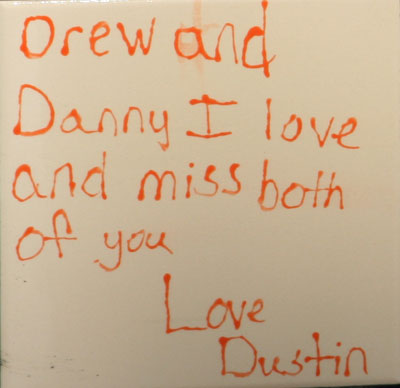 Drew and
Danny I love
and miss both
of you
Love
Dustin